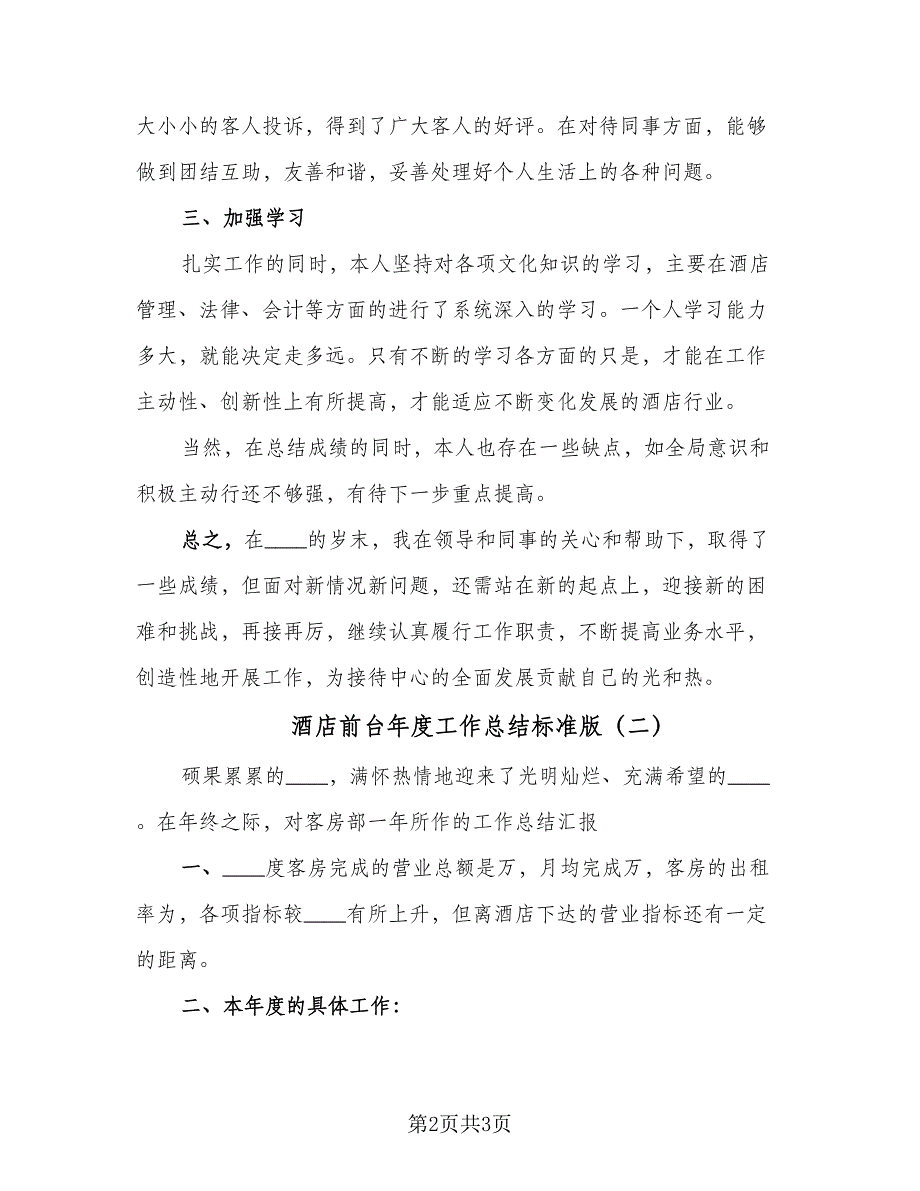 大小小的客人投诉，得到了广大客人的好评。在对待同事方面，能够
做到团结互助，友善和谐，妥善处理好个人生活上的各种问题。
三、加强学习
扎实工作的同时，本人坚持对各项文化知识的学习，主要在酒店
管理、法律、会计等方面的进行了系统深入的学习。一个人学习能力
多大，就能决定走多远。只有不断的学习各方面的只是，才能在工作
主动性、创新性上有所提高，才能适应不断变化发展的酒店行业。
当然，在总结成绩的同时，本人也存在一些缺点，如全局意识和
积极主动行还不够强，有待下一步重点提高。
总之，在____的岁末，我在领导和同事的关心和帮助下，取得了
一些成绩，但面对新情况新问题，还需站在新的起点上，迎接新的困
难和挑战，再接再厉，继续认真履行工作职责，不断提高业务水平，
创造性地开展工作，为接待中心的全面发展贡献自己的光和热。
酒店前台年度工作总结标准版（二）
硕果累累的____，满怀热情地迎来了光明灿烂、充满希望的____
。在年终之际，对客房部一年所作的工作总结汇报
一、____度客房完成的营业总额是万，月均完成万，客房的出租
率为，各项指标较____有所上升，但离酒店下达的营业指标还有一定
的距离。
二、本年度的具体工作：
第2页共3页